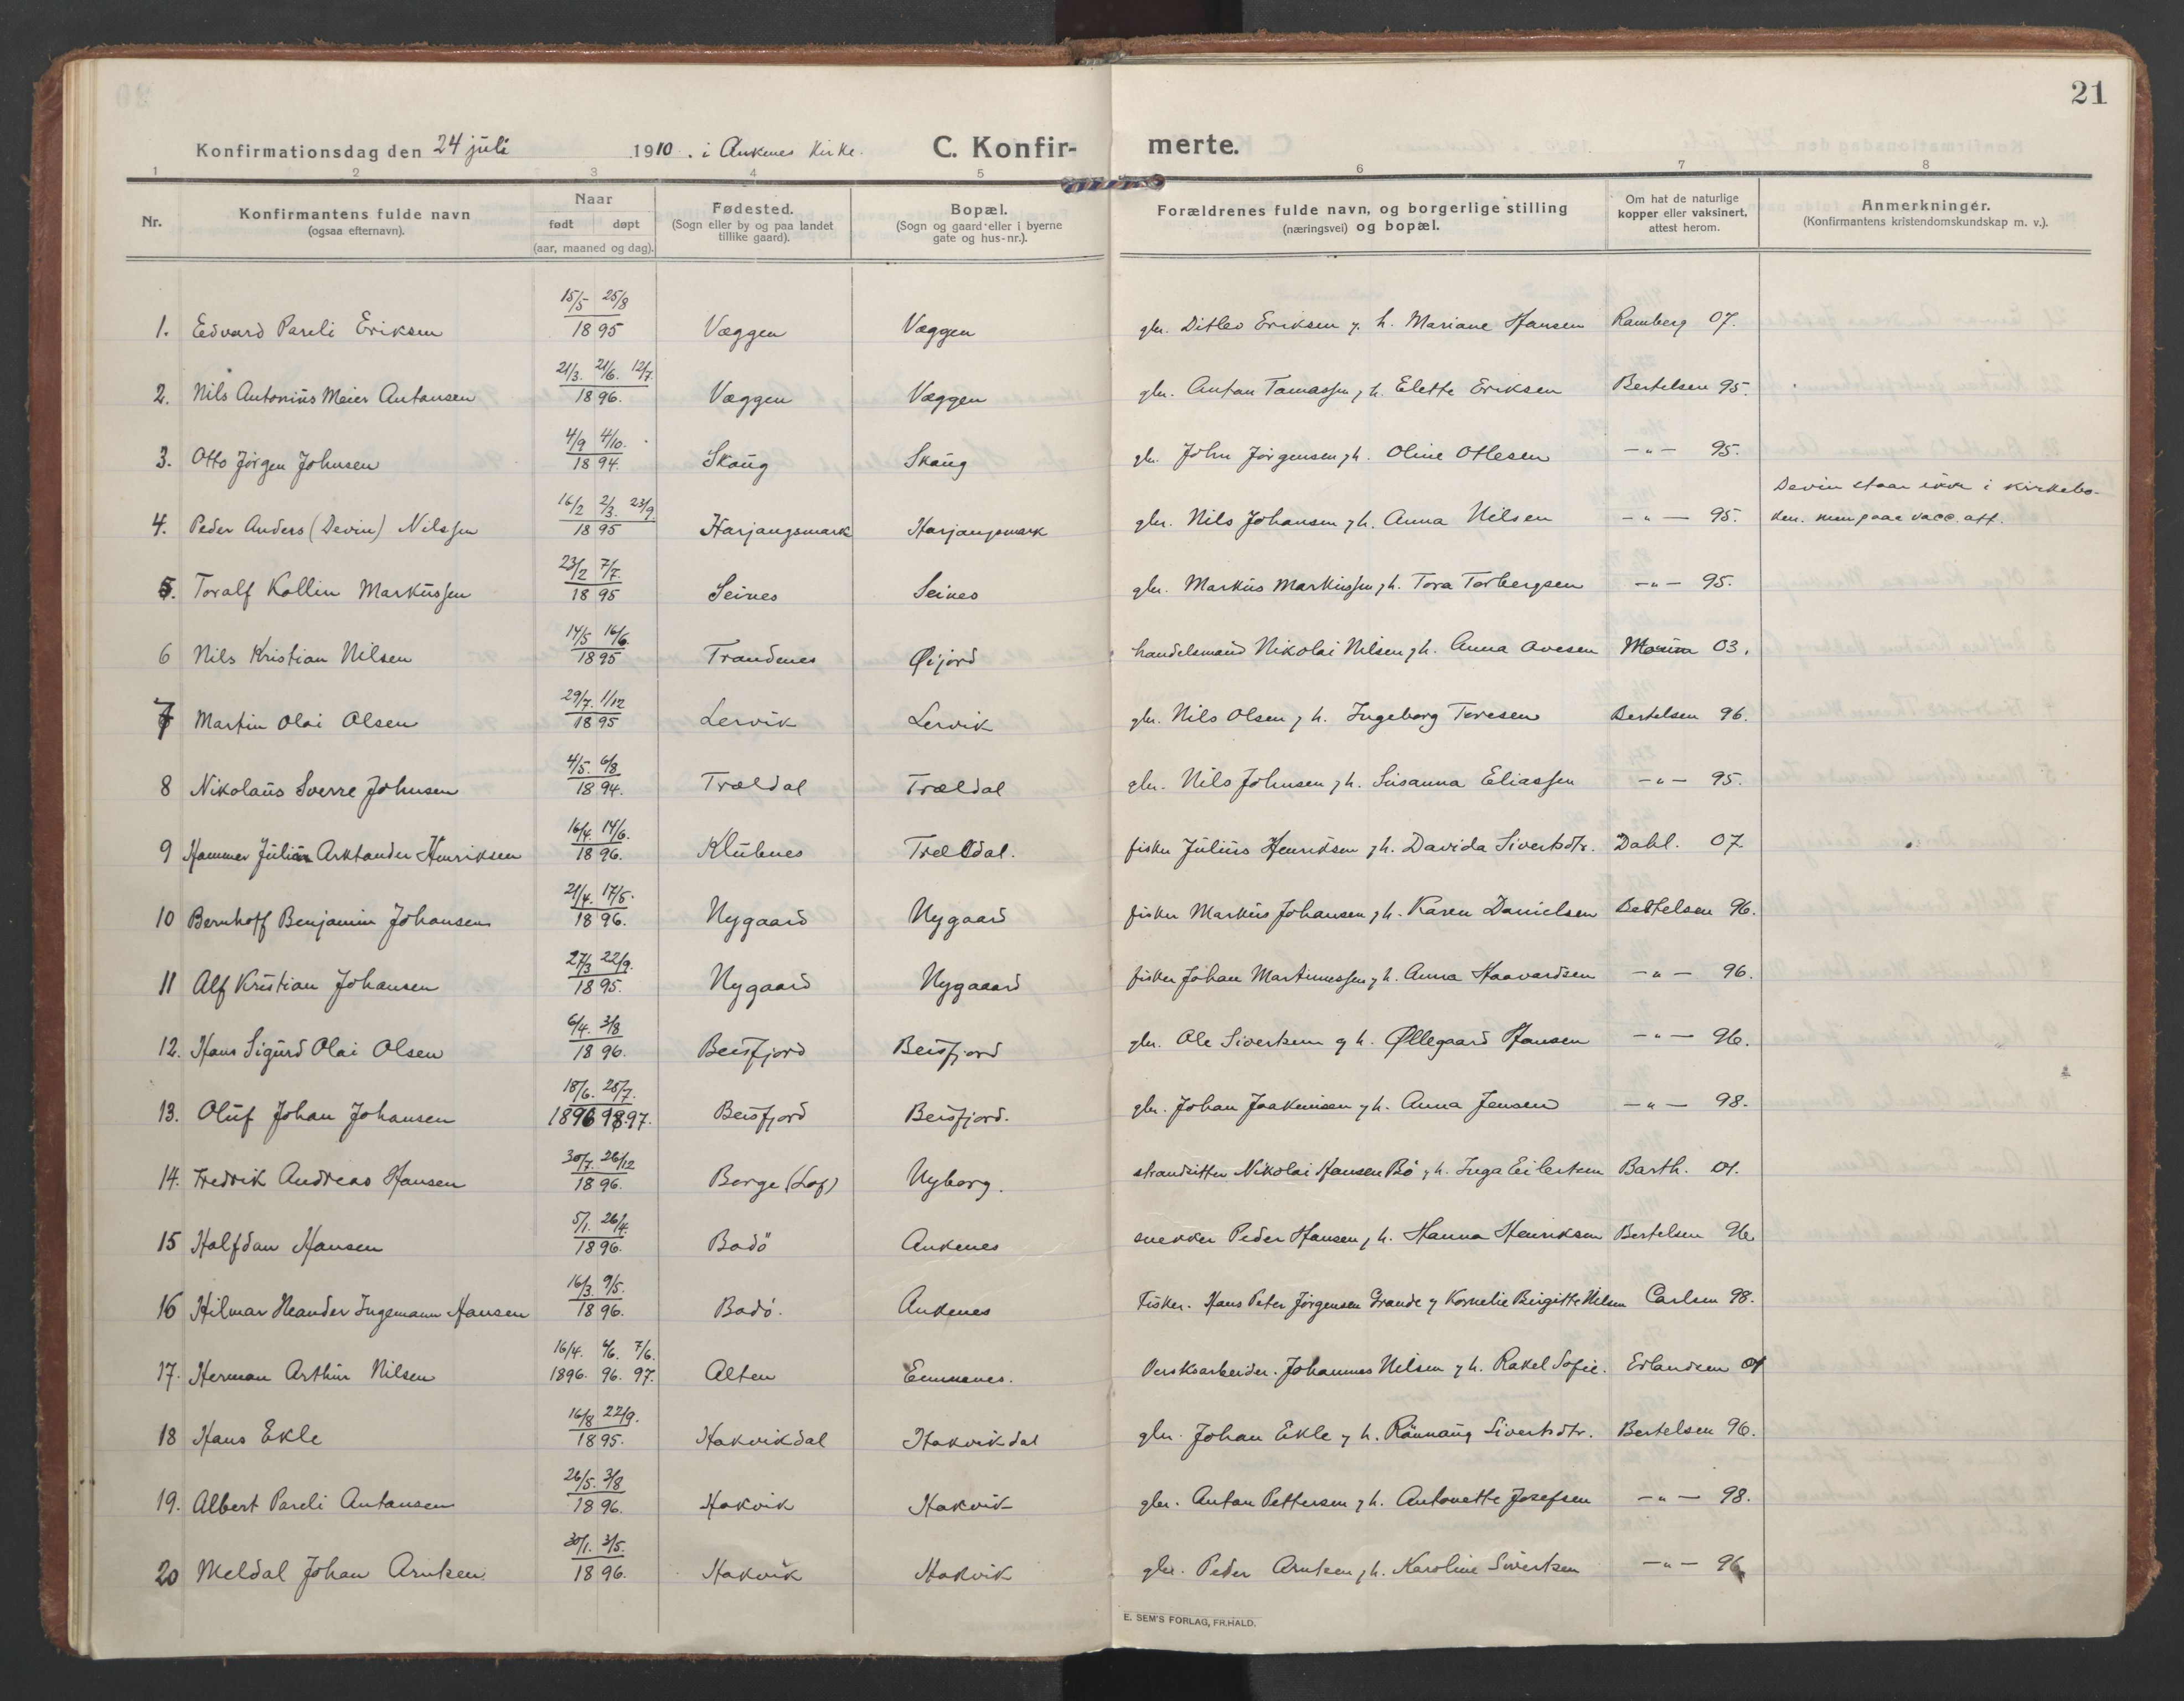 21
Konfirmationsdag den 24 juli 1910. i Ankenes Kirke. C. Konfir- merte.
1 2 3 4 5 6 7 8
Nr. Konfirmantens fulde navn (ogsaa efternavn). Naar født døpt (aar, maaned og dag). Fødested. (Sogn eller by og paa landet tillike gaard). Bopæl. (Sogn og gaard eller i byerne gate og hus-nr.). Forældrenes fulde navn, og borgerlige stilling (næringsvei) og bopæl. Om hat de naturlige kopper eller vaksinert, attest herom. Anmerkninger. (Konfirmantens kristendomskundskap m. v.).
1. Edvard Pareli Eriksen 15/5 25/8 1895 Væggen Væggen gbr. Ditlev Eriksen g. h. Mariane Hansen Ramberg 07.
2. Nils Antonius Meier Antonsen 21/3. 21/6. 12/7. 1896. Væggen Væggen gbr. Anton Tomassen g h. Elette Eriksen Bertelsen 95.
3. Otto Jörgen Johnsen 4/9 4/10. 1894. Skaug Skaug gbr. John Jörgensen g h. Oline Ottesen -"- 95.
4. Peder Anders (Devin) Nilssen 16/2 2/3. 23/9. 1895 Harjangsmark Harjangsmark gbr. Nils Johansen g h. Anna Nilsen -"- 95. Devin staar ikke i kirkebo- ken. men paa vacc. att.
5. Toralf Kollin Markussen 23/2 7/7. 1895 Seines Seines gbr. Markus Markussen g h. Tora Torbergsen -"- 95.
6 Nils Kristian Nilsen 14/5 16/6. 1895 Trandenes Øijord handelsmand Nikolai Nilsen g h. Anna Ovesen 03.
7 Martin Olai Olsen 29/7. 1/12 1895 Lervik Lervik gbr. Nils Olsen g h. Ingeborg Toresen Bertelsen 96.
8 Nikolaus Sverre Johnsen 4/5. 6/8 1894. Trældal Trældal gbr. Nils Johnsen g h. Susanna Eliassen -"- 95.
9 Hammer Julius Arktander Henriksen 16/4. 14/6. 1896. Klubnes Trældal. fisker Julius Henriksen g h. Davida Sivertsdtr. Dahl. 07
10 Bernhoff Benjamin Johansen 21/4. 17/5. 1896. Nygaard Nygaard fisker Markus Johansen g h. Karen Danielsen Bertelsen 96.
11 Alf Kristian Johansen 27/3 22/9. 1895. Nygaard Nygaaard fisker Johan Martinussen g h. Anna Haavardsen -"- 96.
12. Hans Sigurd Olai Olsen 6/4. 3/8 1896. Beisfjord Beisfjord gbr. Ole Sivertsen g h. Øllegaard Hansen -"- 96.
13. Oluf Johan Johansen 18/6. 25/7. 1896 97. Beisfjord Beisfjord. gbr. Johan Joakimsen g h. Anna Jensen -"- 98.
14. Fredrik Andreas Hansen 30/7. 26/12 1896. Borge (Lof) Nyborg. strandsitter Nikolai Hansen Bö g h. Inga Eilertsen Barth. 01.
15 Halfdan Hansen 5/1. 26/4. 1896. Bodö Ankenes snekker Peder Hansen g h. Hanna Henriksen Bertelsen 96
16 Hilmar Neander Ingemann Hansen 16/3. 9/5. 1896. Bodö. Ankenes Fisker. Hans Peter Jörgensen Grande g Kornelie Birgitte Nilsen Carlsen 98.
17. Herman Arthur Nilsen 16/4. 6/6. 7/6. 1896. 96. 97. Alten Emmenes. Verksarbeider. Johannes Nilsen g h. Rakel Sofie. Erlandsen 01
18 Hans Ekle 16/8 22/9. 1895. Hakvikdal Hakvikdal gbr. Johan Ekle g h. Rönnaug Sivertsdtr. Bertelsen 96.
19. Albert Pareli Antonsen 26/5. 3/8 1896. Hakvik Hakvik gbr. Anton Pettersen g h. Antonette Josefsen -"- 98.
20 Meldal Johan Arntsen 30/1. 3/5. 1896. Hakvik Hakvik gbr. Peder Arntsen g h. Karoline Sivertsen -"- 96
E. SEM'S FORLAG, FR.HALD.